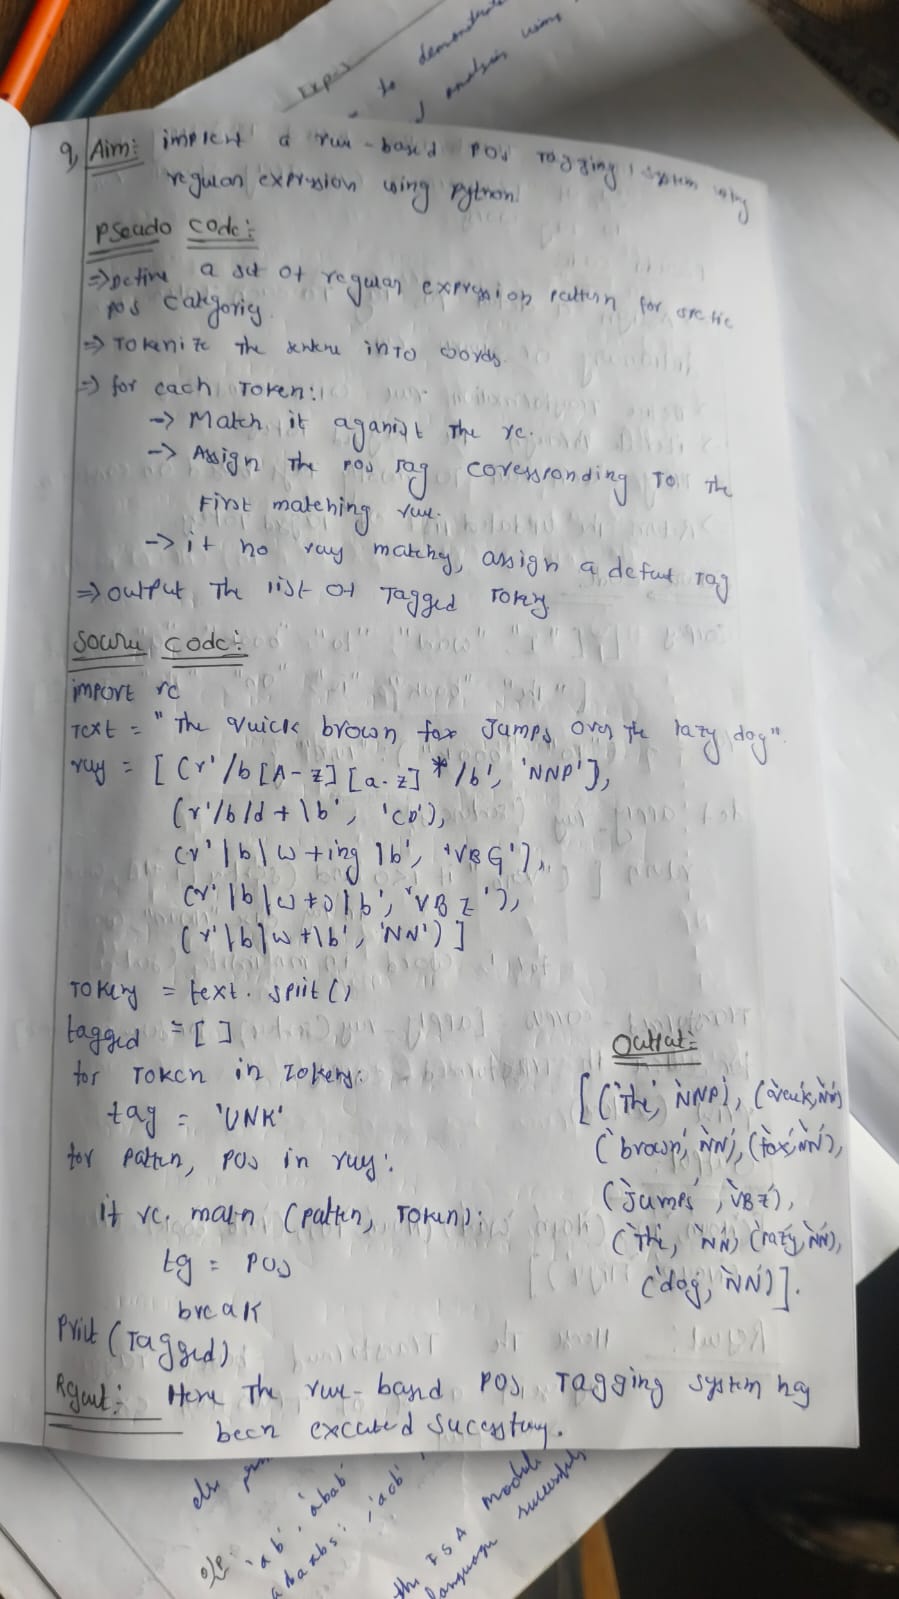 Exp:-
to demonstrate
analysis using
9, Aim: implent a rule-based POS Tagging system using
regular expression using python.
Pseudo code:-
=> Define a set of regular expression pattern for specific
pos categories.
=> Tokenize the sentence into words.
=> for each Token:
-> Match it aganist the re.
-> Assign the pos tag coressponding To the
First matching rule.
-> if no rules matches, assign a default Tag
=> output The list of Tagged Tokens
Source code:-
import re
Text = "The quick brown fox Jumps over the lazy dog".
rules = [(r'/b[A-Z][a-z]*/b', 'NNP'),
(r'/b/d+\b', 'CD'),
(r'\b\w+ing\b', 'VBG'),
(r'\b\w+s\b', 'VBZ'),
(r'\b\w+\b', 'NN')]
Tokens = text.split()
tagged = []
for Token in Tokens:
tag = 'UNK'
for patten, pos in rules:
if re.match(patten, Token):
tg = pos
break
Print(Tagged)
Output:-
[('The', 'NNP'), ('quick', 'NN')
('brown', 'NN'), ('fox', 'NN'),
('Jumps', 'VBZ'),
('The', 'NN') ('lazy', 'NN'),
('dog', 'NN')].
Result:- Here The rule-based POS Tagging system has
been excuted sucessfully.
o/p: 'ab', 'abab'
'aab'
the FSA module
language successfully